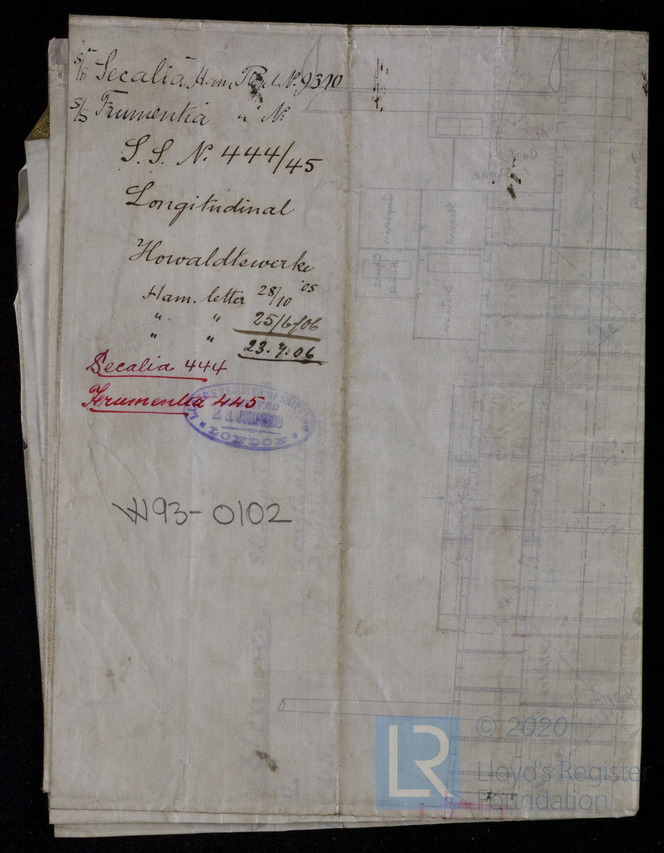 S/S Secalia Ham. Rept No. 9310
S/S Frumentia " No.
S.S. No. 444/45
Longitudinal
Howaldtswerke
Ham. letter 28/10 '05
" " 25/6/06
" " 23.7.06
Secalia 444
Frumentia 445
LLOYD'S REGISTER OF SHIPPING
LONDON
W93-0102
LR
© 2020
Lloyd's Register
Foundation